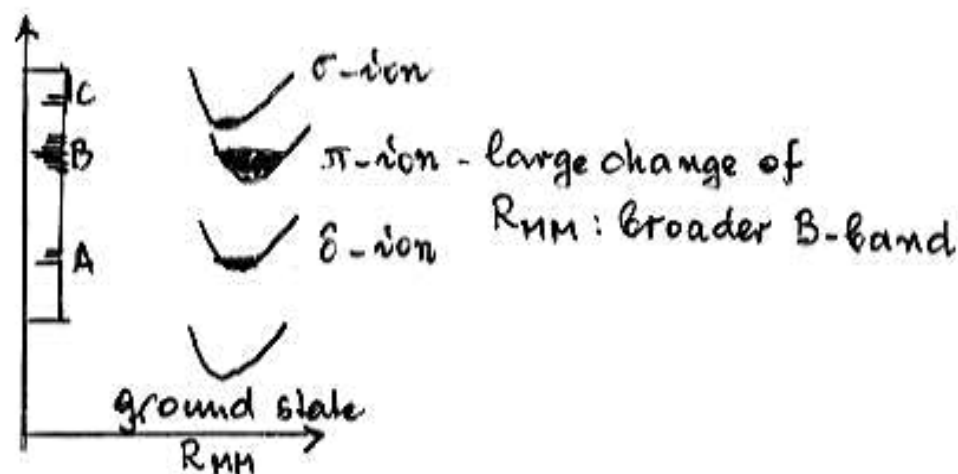 C
σ-ion
B
π-ion - large change of
R_MM: broader B-band
A
δ-ion
ground state
R_MM